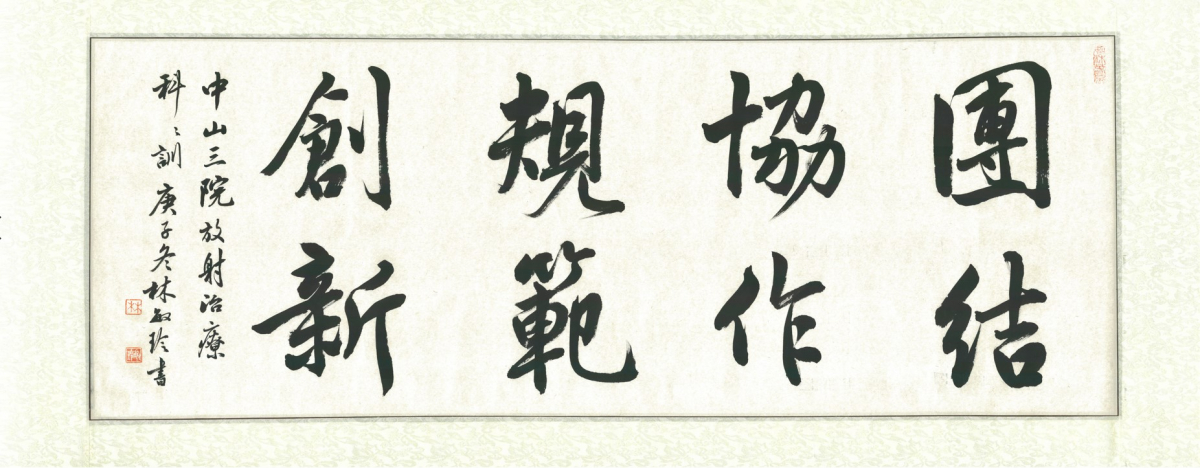 團結
協作
規範
創新
中山三院放射治療
科〻訓 庚子冬林敏玲書
林